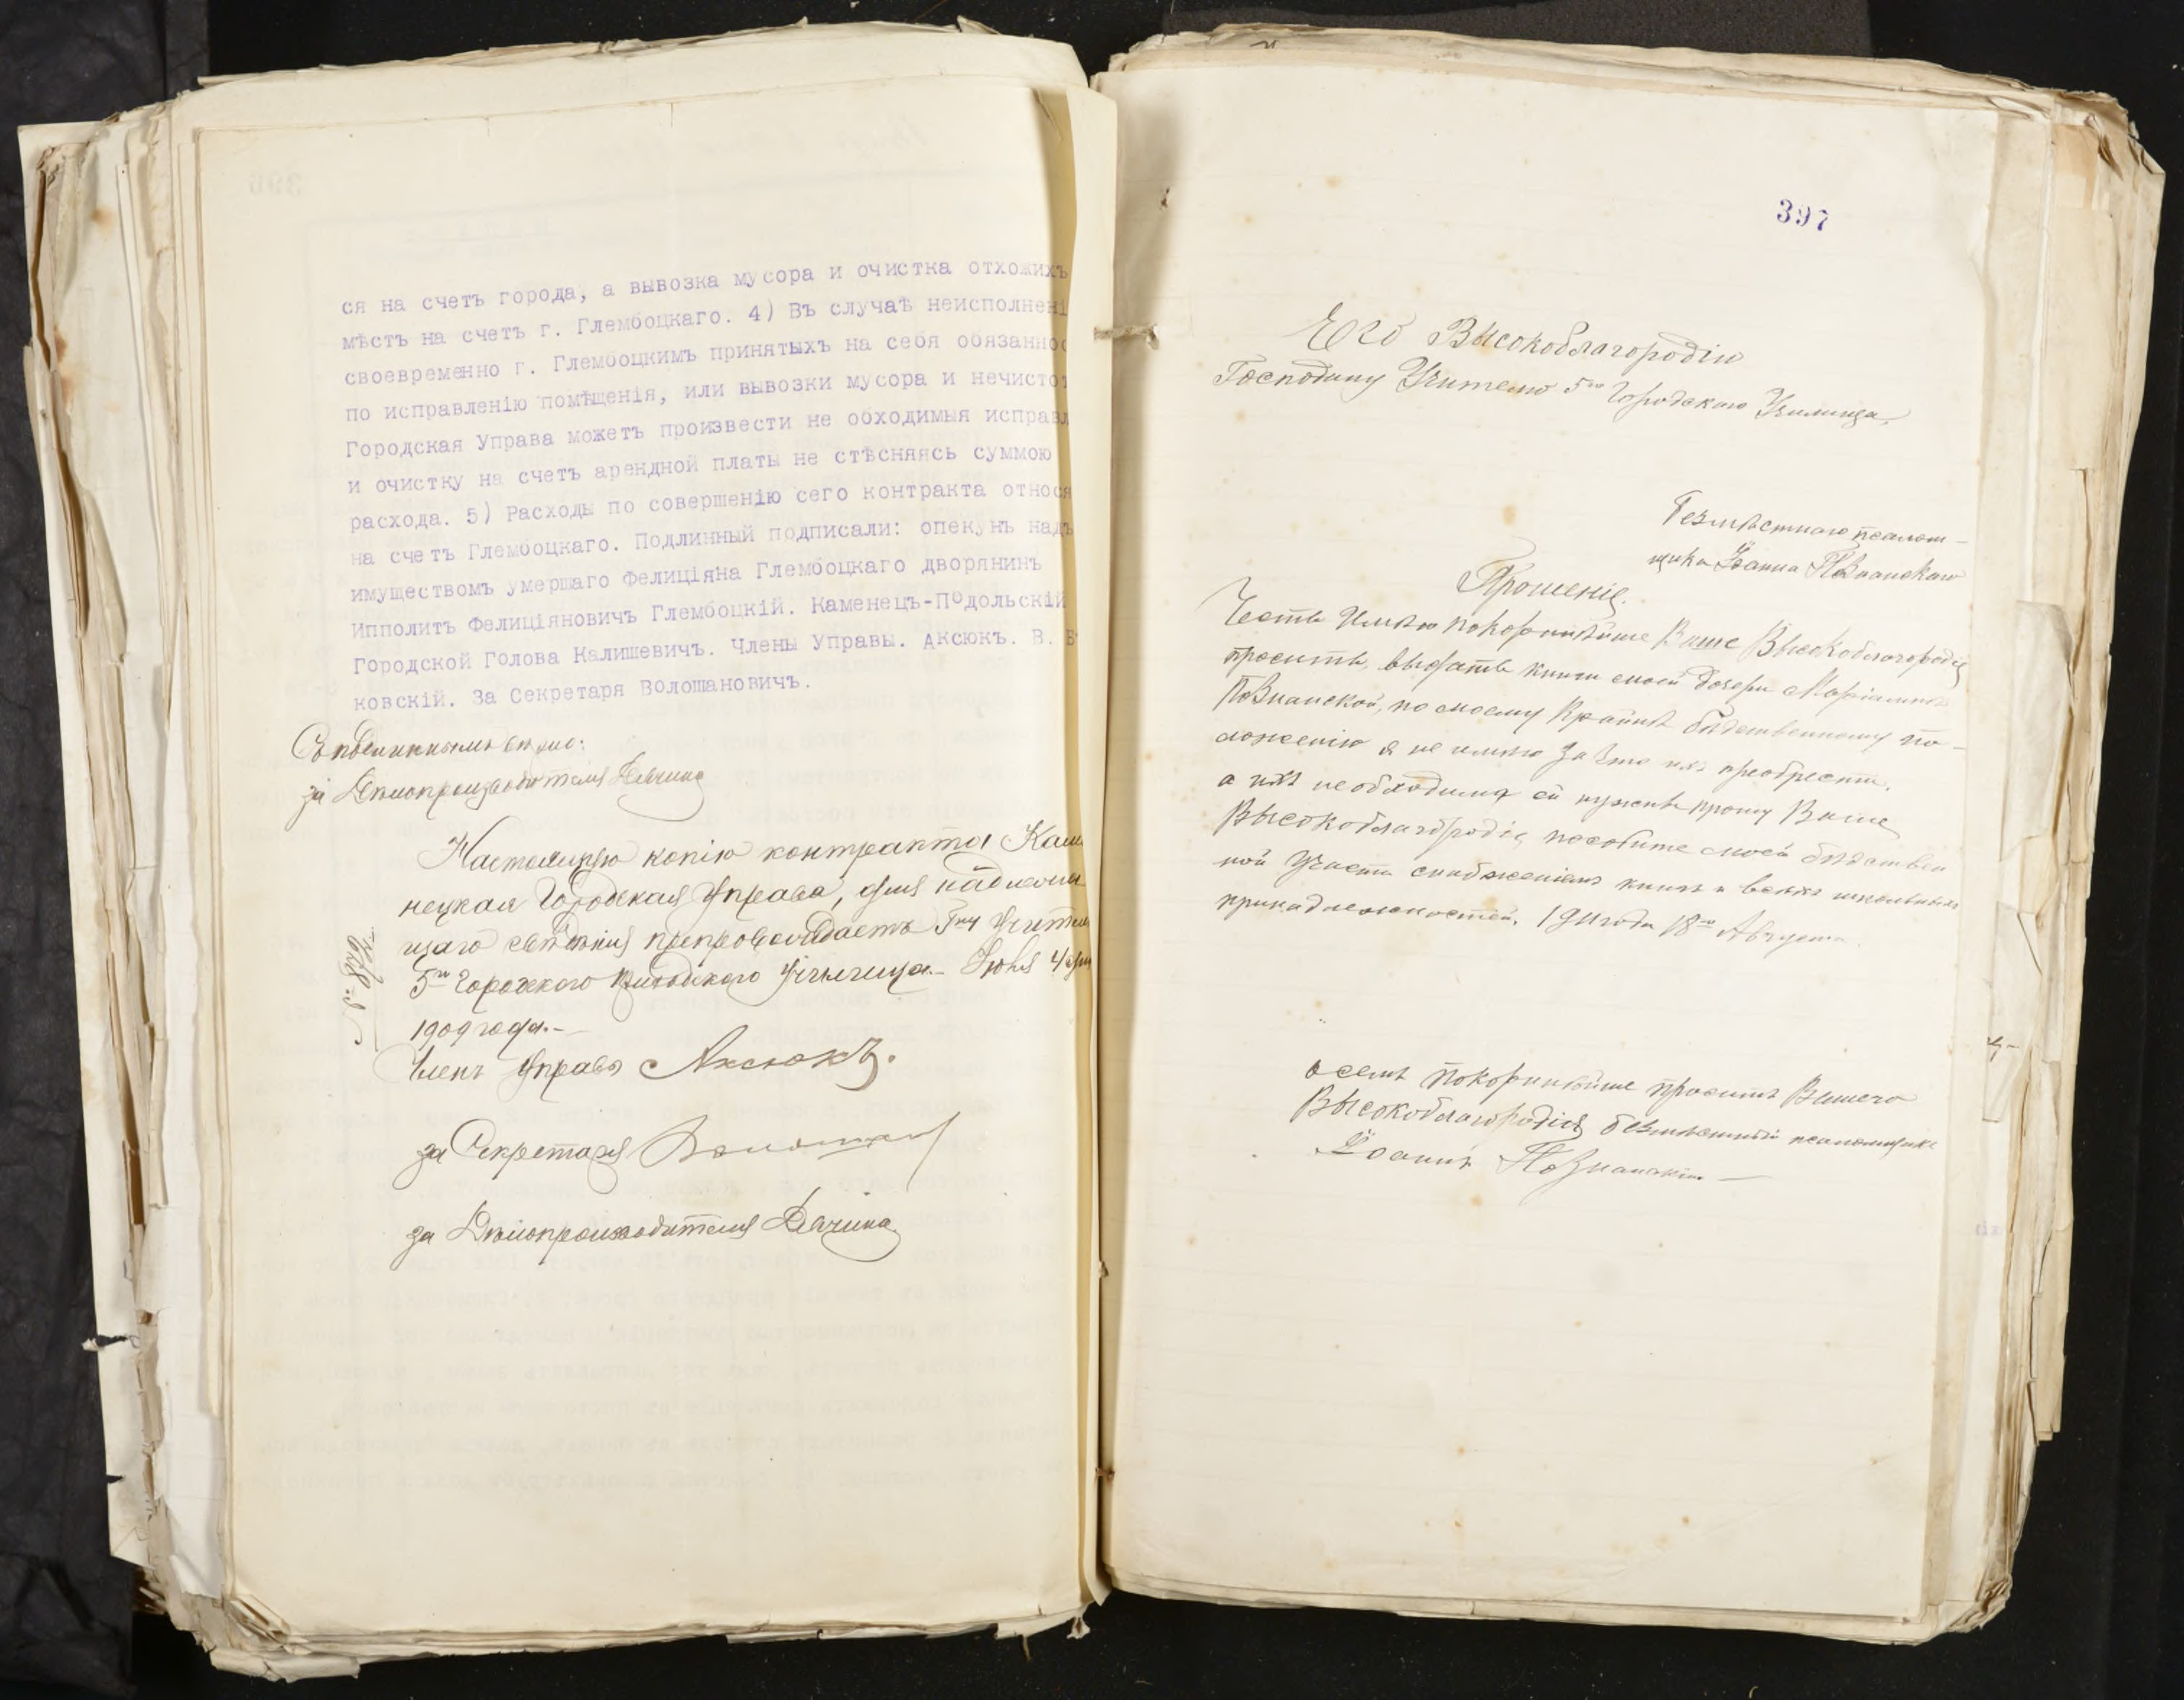 ся на счетъ города, а вывозка мусора и очистка отхожихъ
мѣстъ на счетъ г. Глембоцкаго. 4) Въ случаѣ неисполнені
своевременно г. Глембоцкимъ принятыхъ на себя обязаннос
по исправленію помѣщенія, или вывозки мусора и нечистот
Городская Управа можетъ произвести не обходимыя исправл
и очистку на счетъ арендной платы не стѣсняясь суммою
расхода. 5) Расходы по совершенію сего контракта относя
на счетъ Глембоцкаго. Подлинный подписали: опекунъ надъ
имуществомъ умершаго Фелиціяна Глембоцкаго дворянинъ
Ипполитъ Фелиціяновичъ Глембоцкій. Каменецъ-Подольскій
Городской Голова Калишевичъ. Члены Управы. Аксюкъ. В. Б
ковскій. За Секретаря Волошановичъ.
Съ подлиннымъ вѣрно:
за Дѣлопроизводителя
Настоящую копію контракта Каме
нецкая Городская Управа, для надлежа
щаго свѣдѣнія препровождаетъ Гну Учителю
5го Городского Приходского Училища. Іюня 4 дня
1909 года.-
Членъ Управы Аксюкъ.
за Секретаря
за Дѣлопроизводителя
397
Его Высокоблагородію
Господину Учителю 5го Городскаго Училища,
Безмѣстнаго псалом-
щика Іоанна Познанскаго
Прошеніе.
Честь Имѣю покорнѣйше Ваше Высокоблагородіе
просить, выдать книги моей дочери Маріамнѣ
Познанской, по моему Крайнѣ бѣдственному по-
ложенію я не имѣю за что ихъ преобрести,
а ихъ необходимо ей нужно прошу Ваше
Высокоблагородіе пособите моей бѣдствен
ной Участи снабженіемъ книгъ и всѣхъ школьныхъ
принадлежностей, 1911 года 18го Августа.
о семъ покорнѣйше проситъ Вашего
Высокоблагородія безмѣстный псаломщикъ
Іоаннъ Познанскій